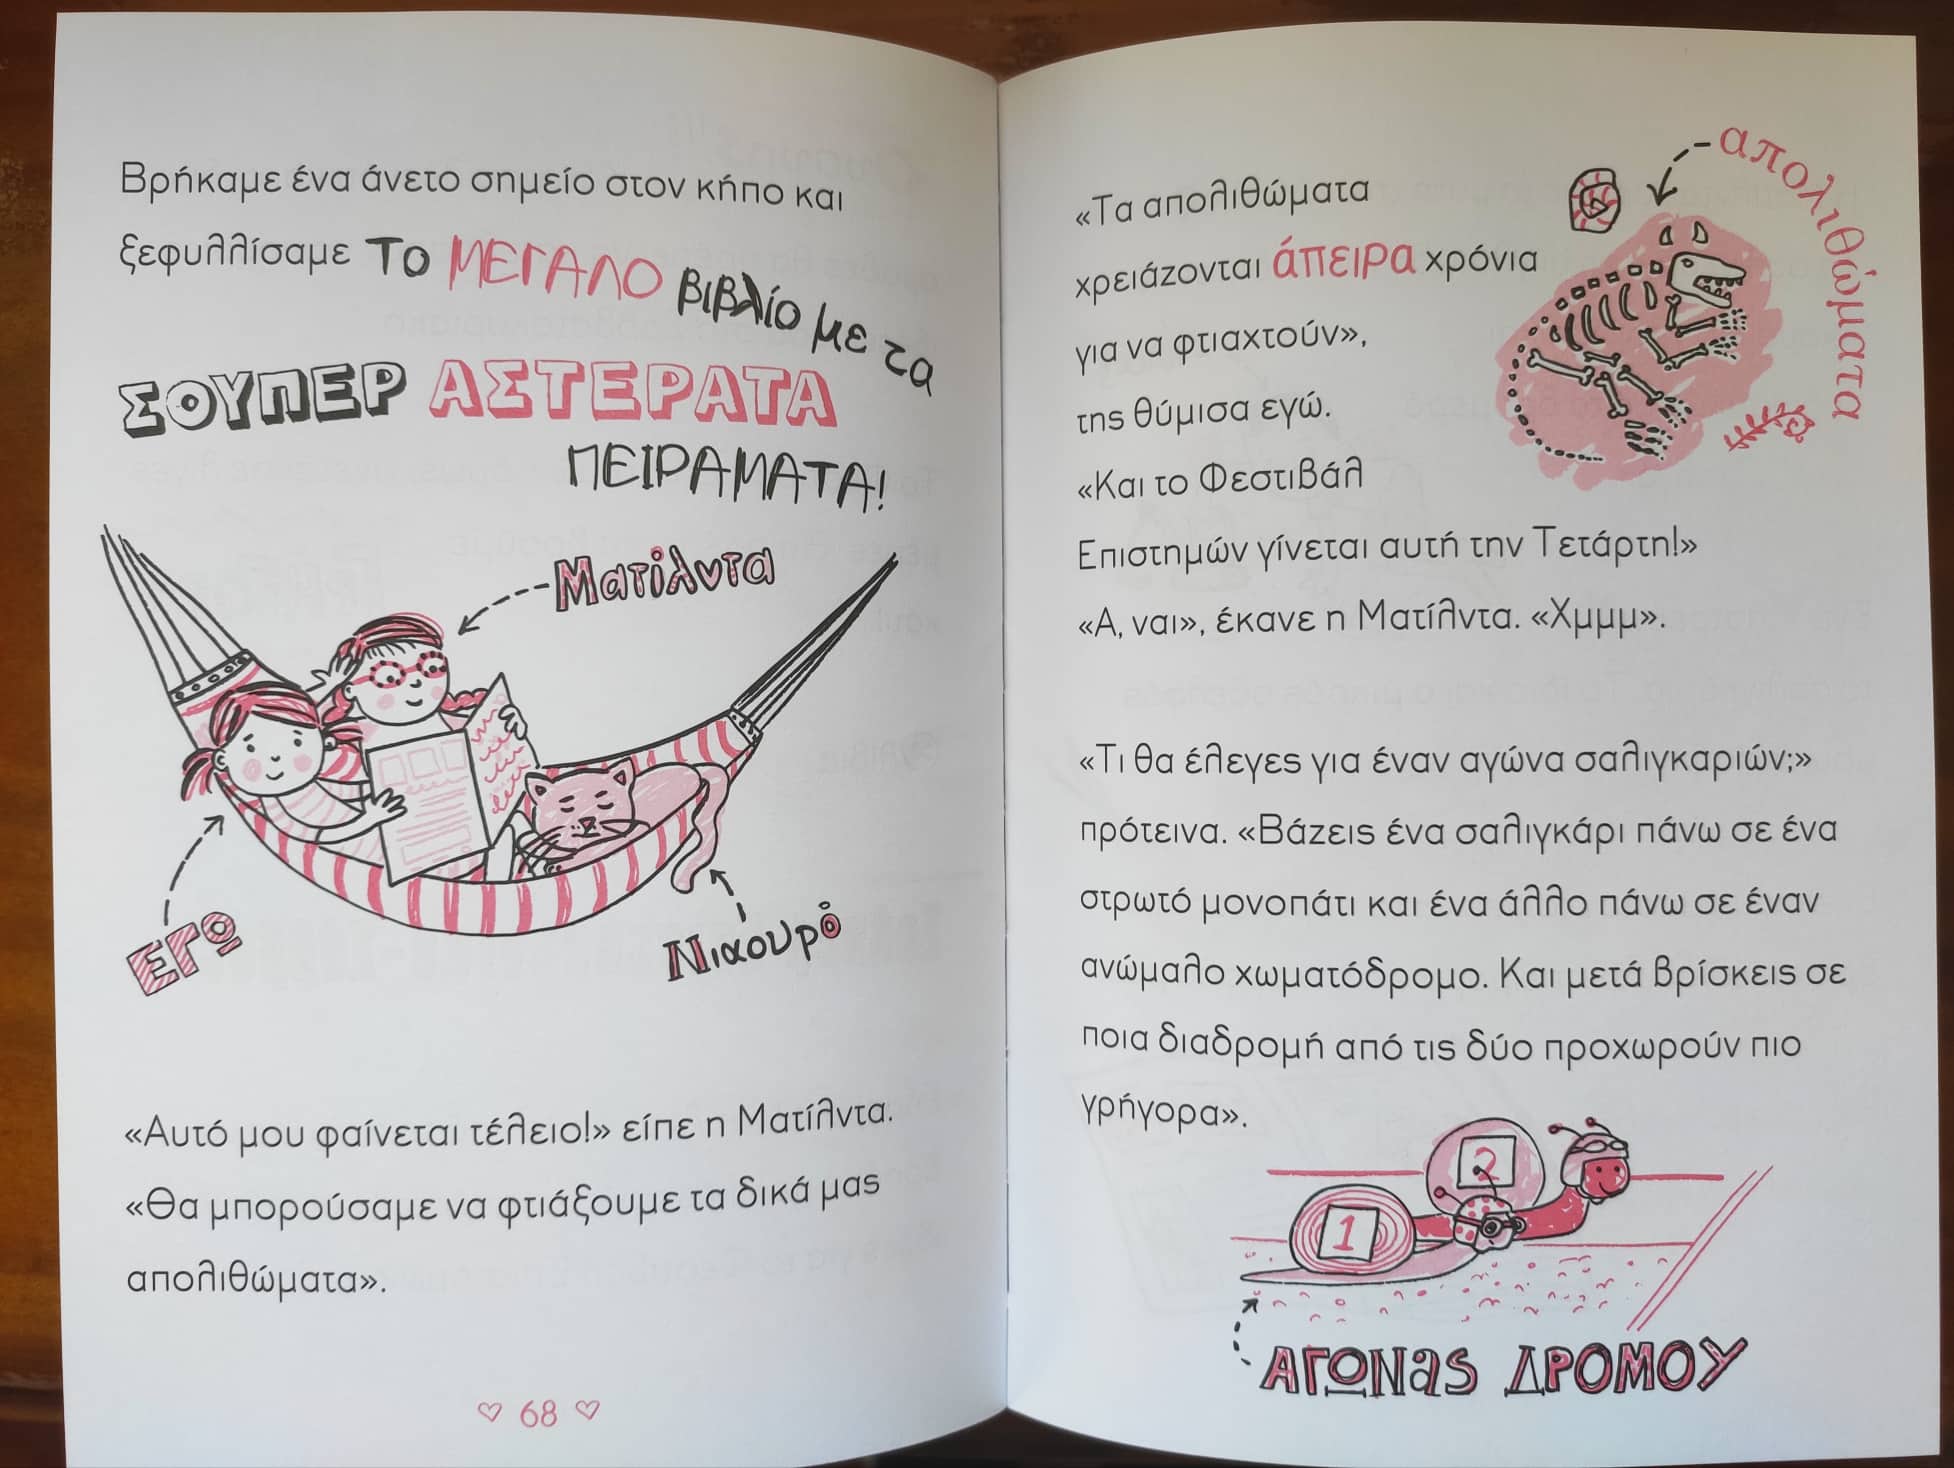 Βρήκαμε ένα άνετο σημείο στον κήπο και
ξεφυλλίσαμε ΤΟ ΜΕΓΑΛΟ βιβλίο με τα
ΣΟΥΠΕΡ ΑΣΤΕΡΑΤΑ
ΠΕΙΡΑΜΑΤΑ!
Ματίλντα
ΕΓΩ
Νιαουρό
«Αυτό μου φαίνεται τέλειο!» είπε η Ματίλντα.
«Θα μπορούσαμε να φτιάξουμε τα δικά μας
απολιθώματα».
68
απολιθώματα
«Τα απολιθώματα
χρειάζονται άπειρα χρόνια
για να φτιαχτούν»,
της θύμισα εγώ.
«Και το Φεστιβάλ
Επιστημών γίνεται αυτή την Τετάρτη!»
«Α, ναι», έκανε η Ματίλντα. «Χμμμ».
«Τι θα έλεγες για έναν αγώνα σαλιγκαριών;»
πρότεινα. «Βάζεις ένα σαλιγκάρι πάνω σε ένα
στρωτό μονοπάτι και ένα άλλο πάνω σε έναν
ανώμαλο χωματόδρομο. Και μετά βρίσκεις σε
ποια διαδρομή από τις δύο προχωρούν πιο
γρήγορα».
2
1
ΑΓΩΝας ΔΡΟΜΟΥ